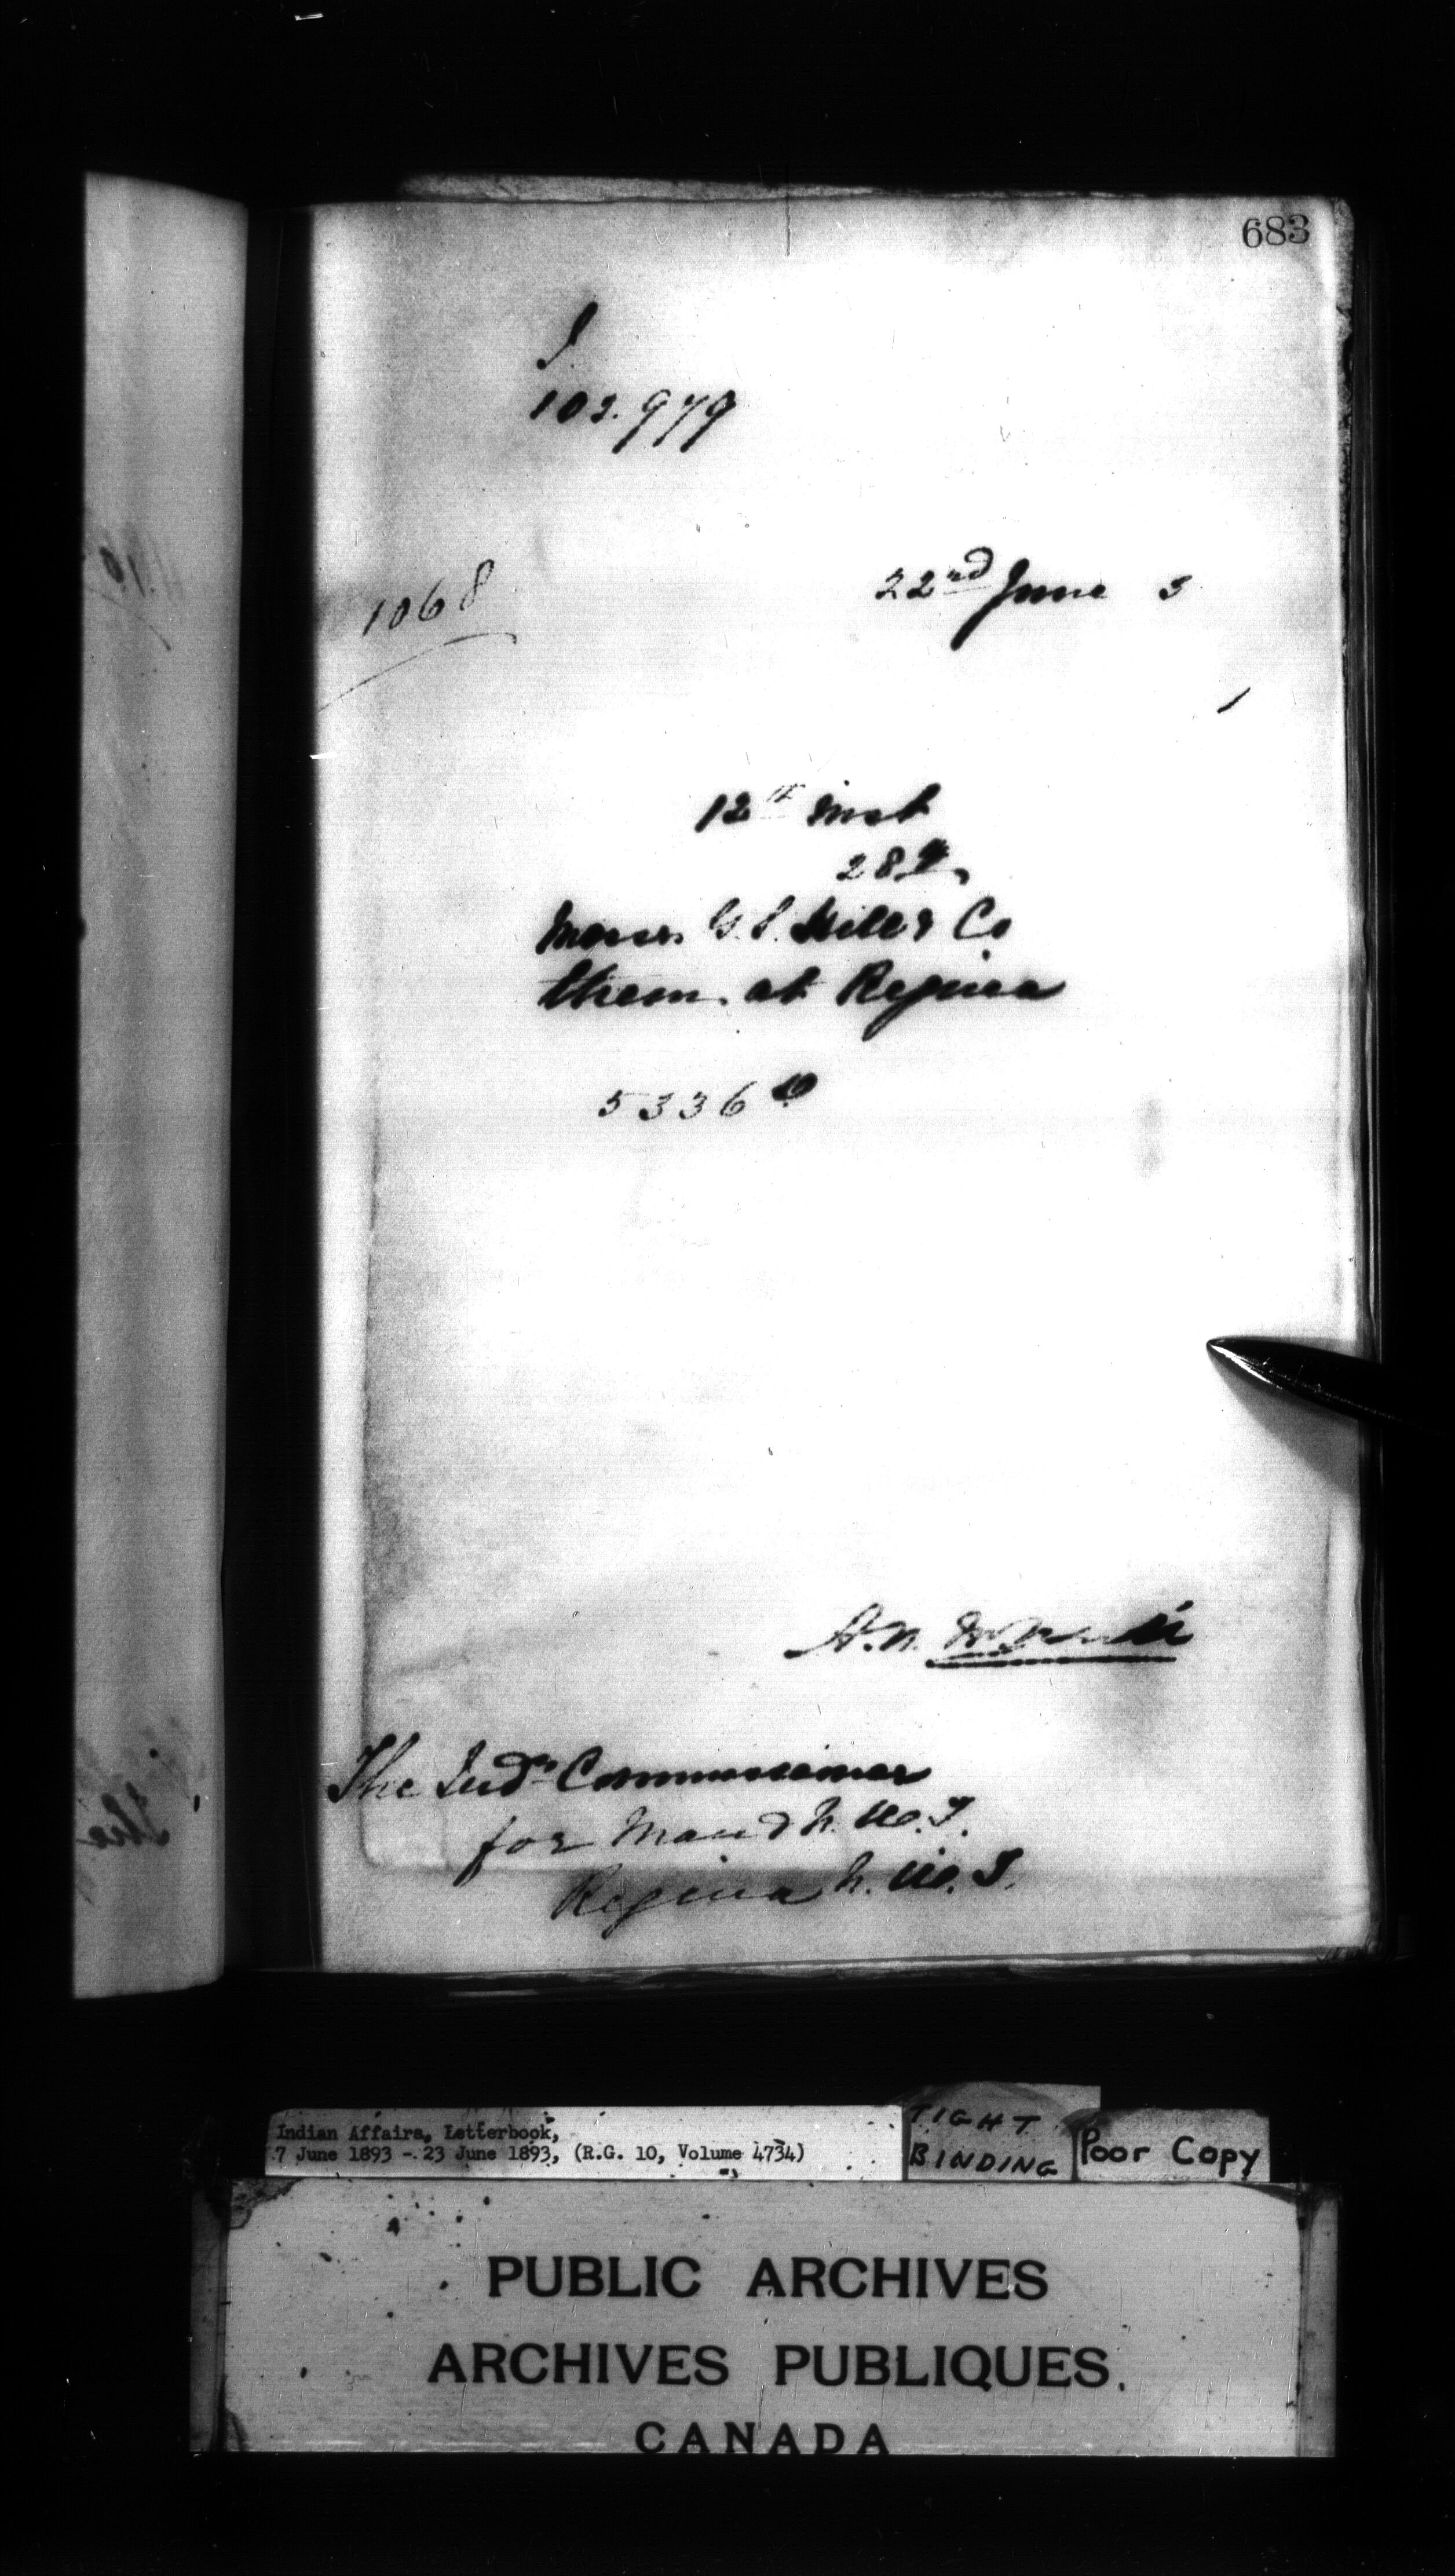 683
102.979
1068
22nd June 3
12th inst
28th,
Messrs G. S. & Co
them at Regina
5336
A. N.
The Indn Commissioner
for Man & N. W. T.
Regina N. W. T.
Indian Affairs, Letterbook,
7 June 1893 - 23 June 1893, (R.G. 10, Volume 4734)
TIGHT
BINDING
Poor Copy
PUBLIC ARCHIVES
ARCHIVES PUBLIQUES
CANADA